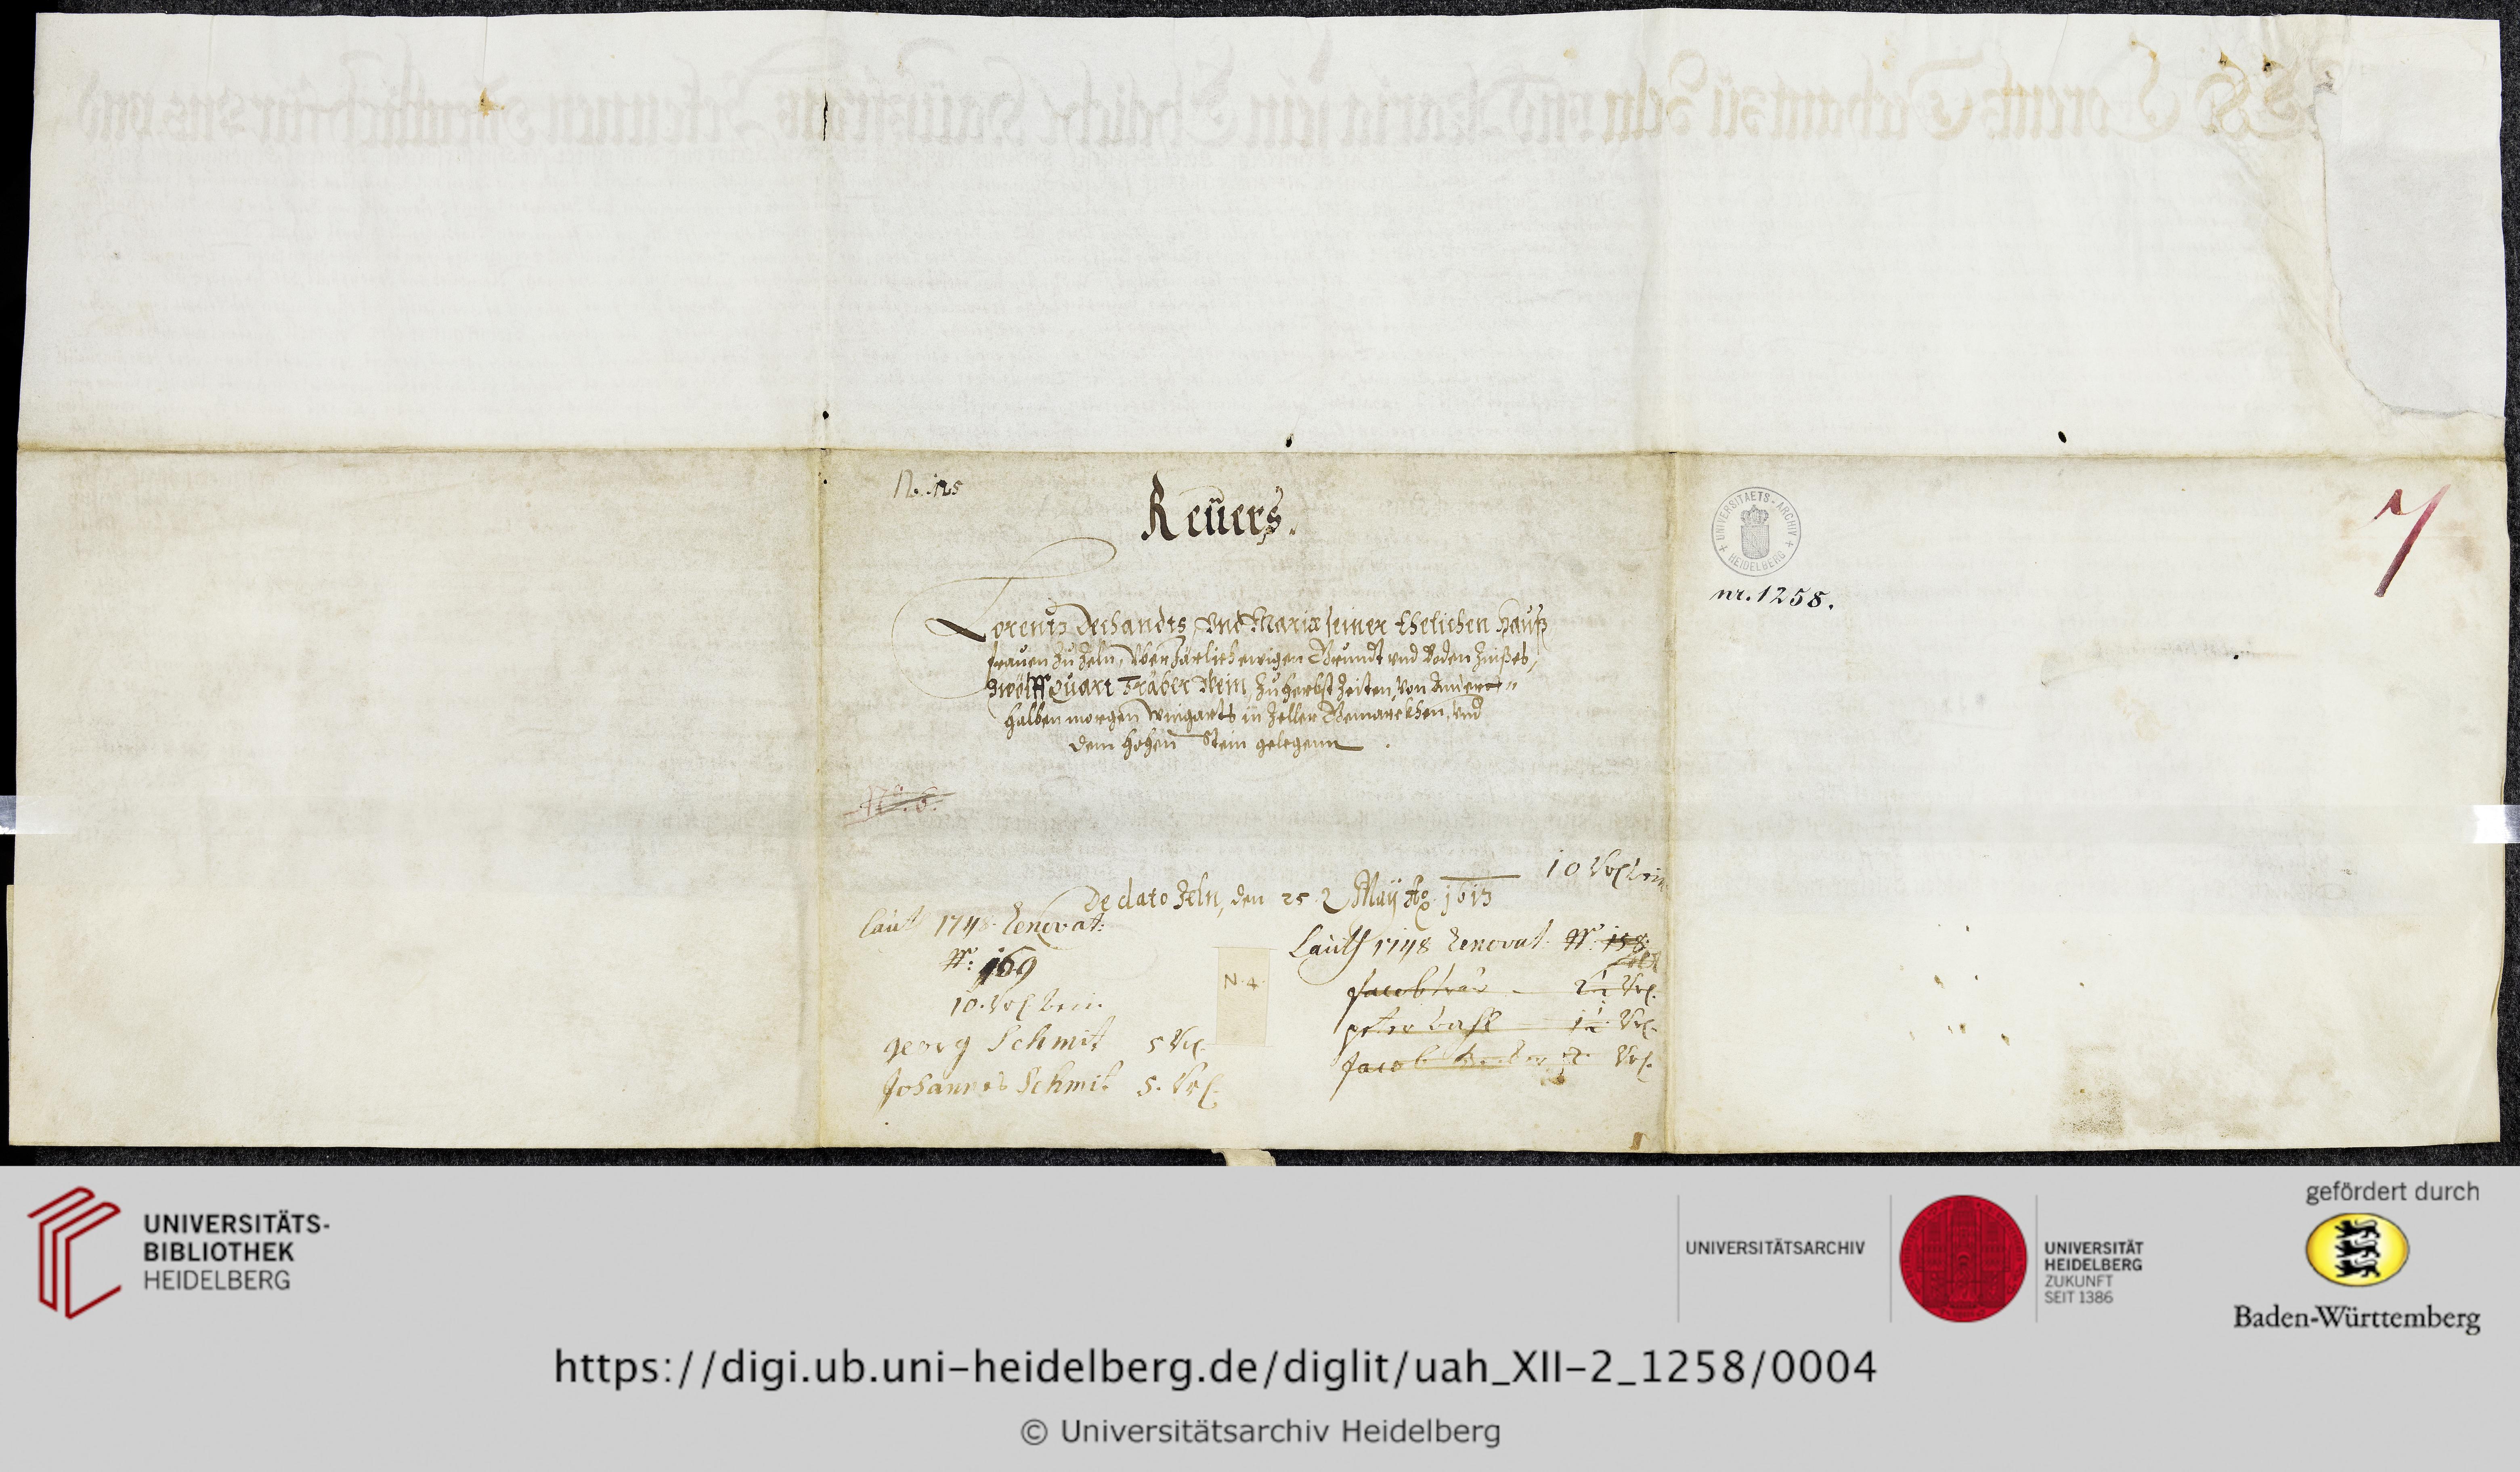 N. 125
Reüers.
Lorentz Dechandts, vnd Mariæ seiner Ehelichen Hauß
frauen zu Zeln, vber Järlich ewigen Grundt vnd Boden Zinßes,
Zwölff Quart Träber Wein, zu Herbst Zeiten, von Andert-
halben morgen Wingarts in Zeller Gemarckhen, vnd
dem hohen Stein gelegenn.
No. 6.
De dato Zeln, den 25 May Ao. 1613
10 Vrl. Wein
laut 1748 Renovat:
N: 169
10. Vrl. Wein.
georg Schmit 5 Vrl.
Johannes Schmit 5. Vrl.
N. 4.
Lauth 1748 Renovat. N. 158
Jacob
peter
Jacob
UNIVERSITAETS-ARCHIV
HEIDELBERG
nr. 1258.
7
UNIVERSITÄTS-
BIBLIOTHEK
HEIDELBERG
UNIVERSITÄTSARCHIV
UNIVERSITÄT
HEIDELBERG
ZUKUNFT
SEIT 1386
gefördert durch
Baden-Württemberg
https://digi.ub.uni-heidelberg.de/diglit/uah_XII-2_1258/0004
© Universitätsarchiv Heidelberg